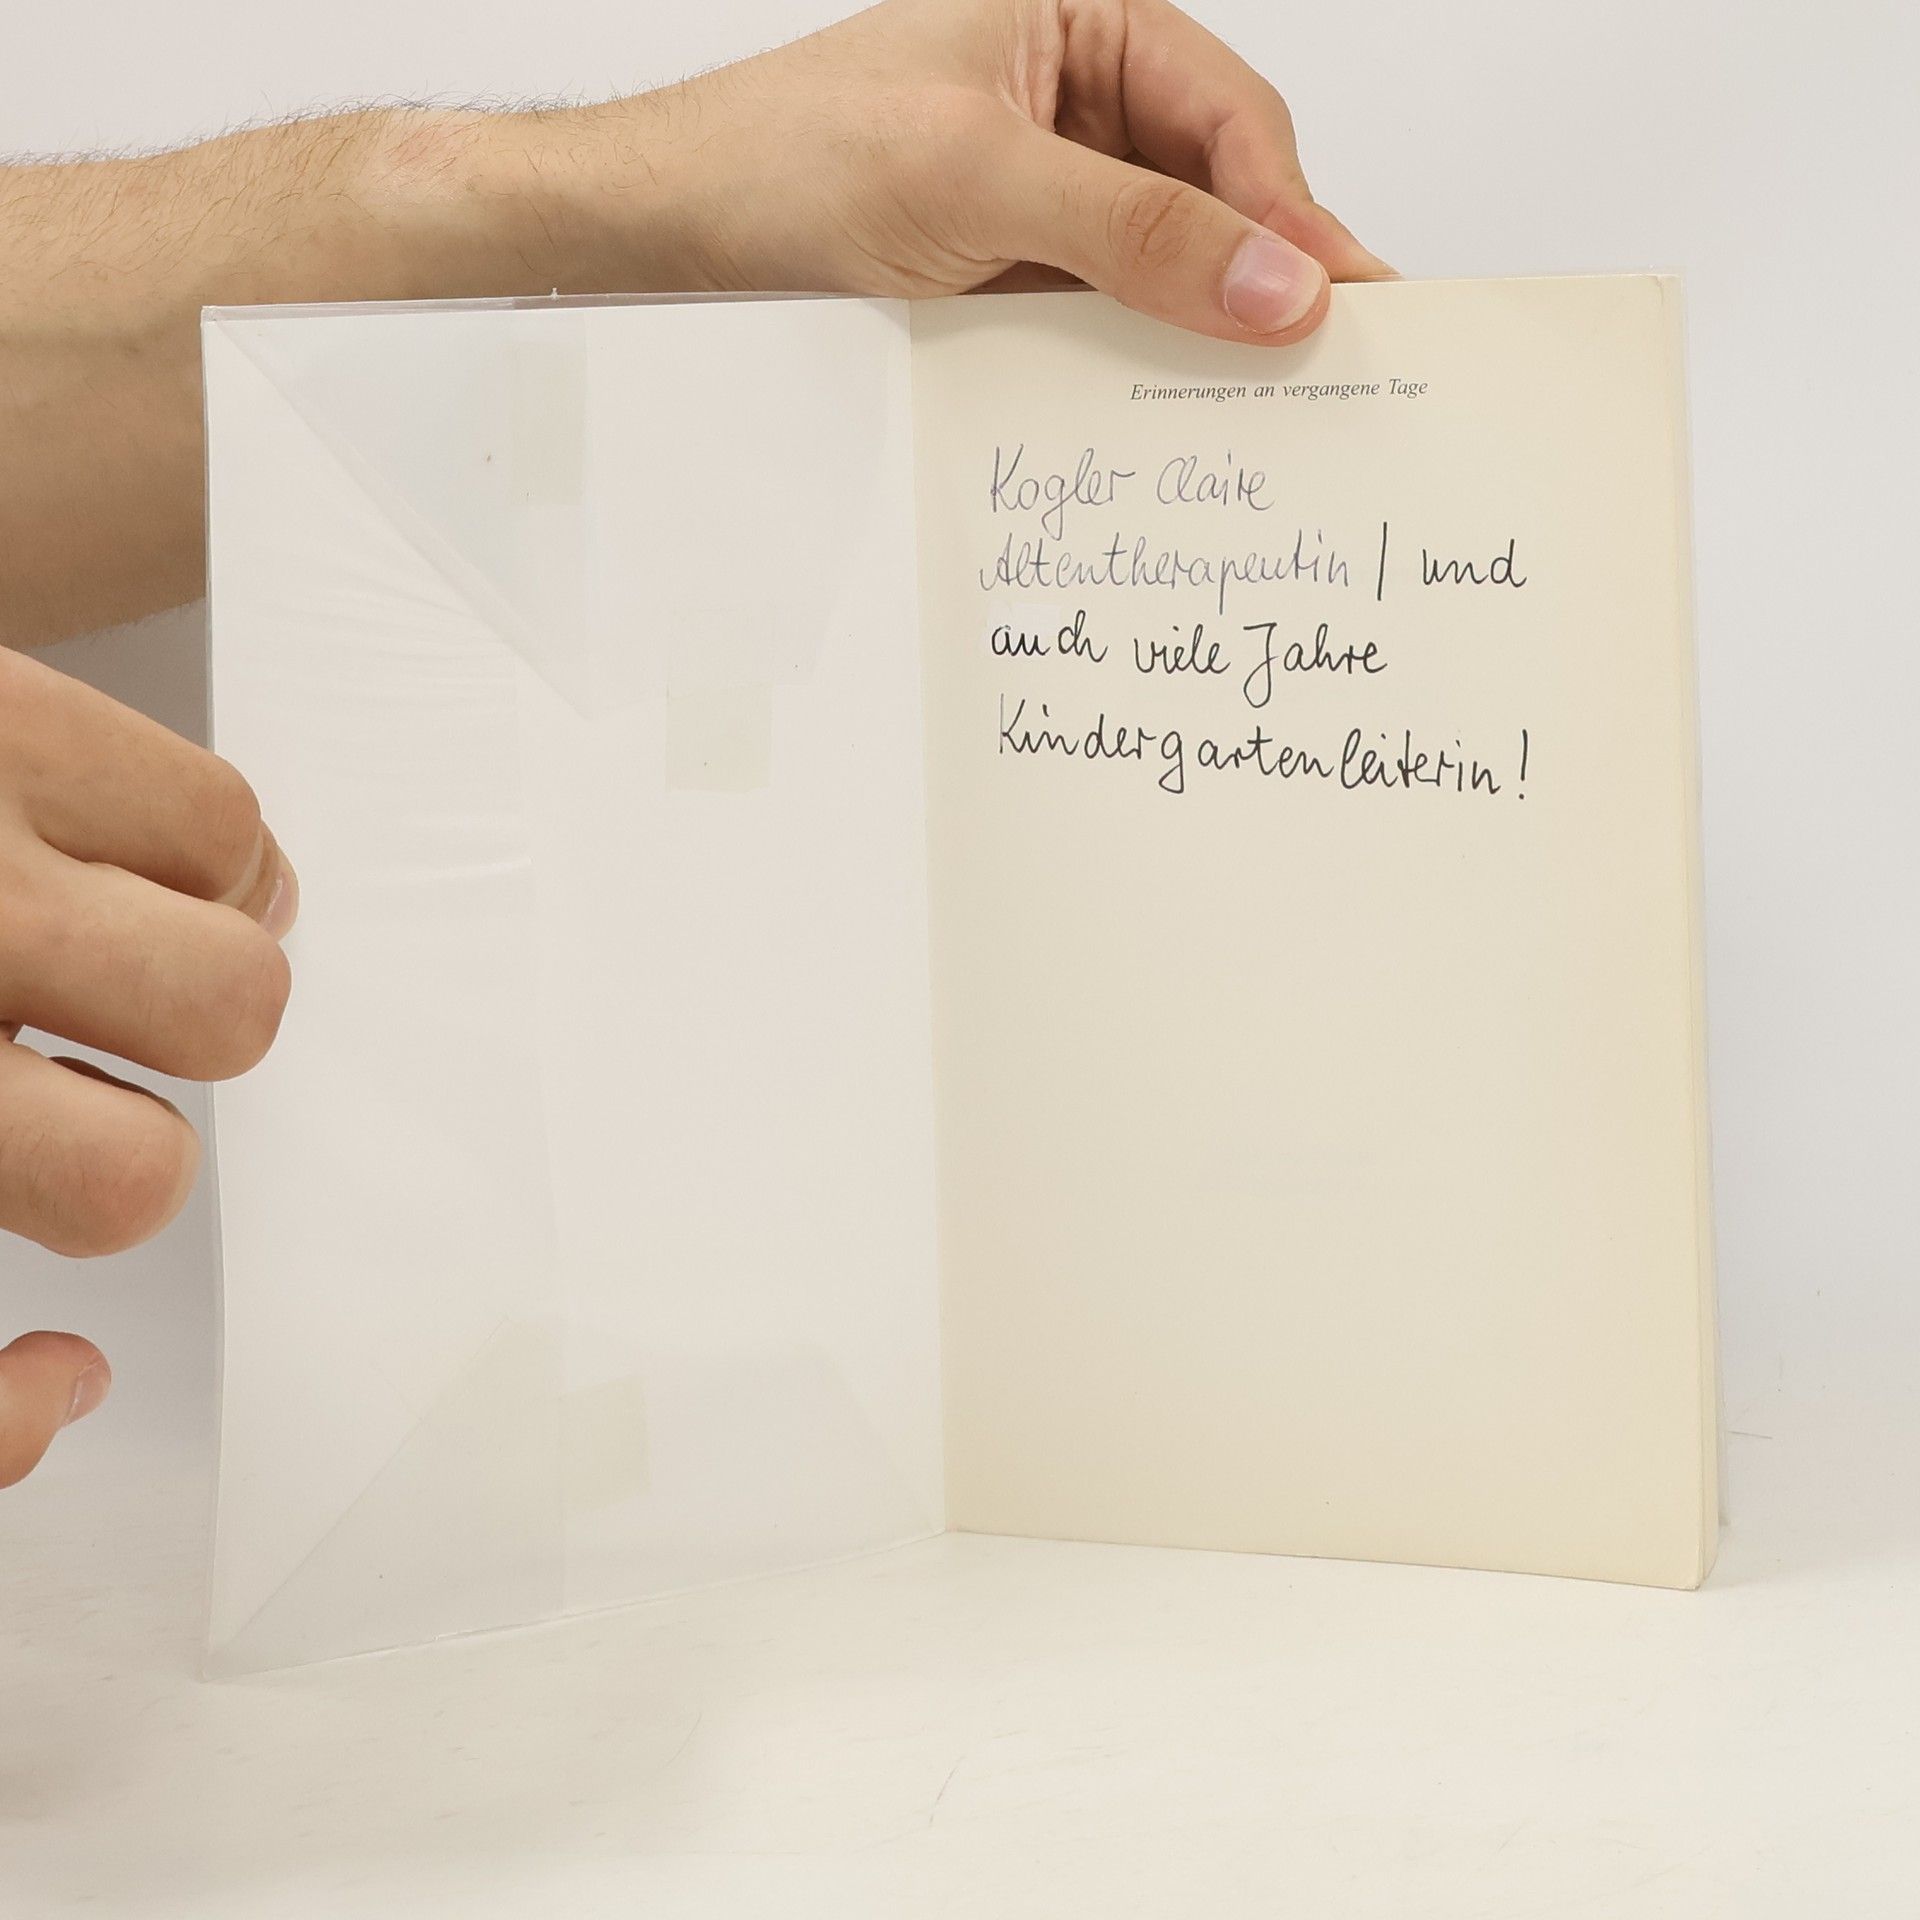 Erinnerungen an vergangene Tage
Kogler Claire
Altentherapeutin / und
auch viele Jahre
Kindergartenleiterin!